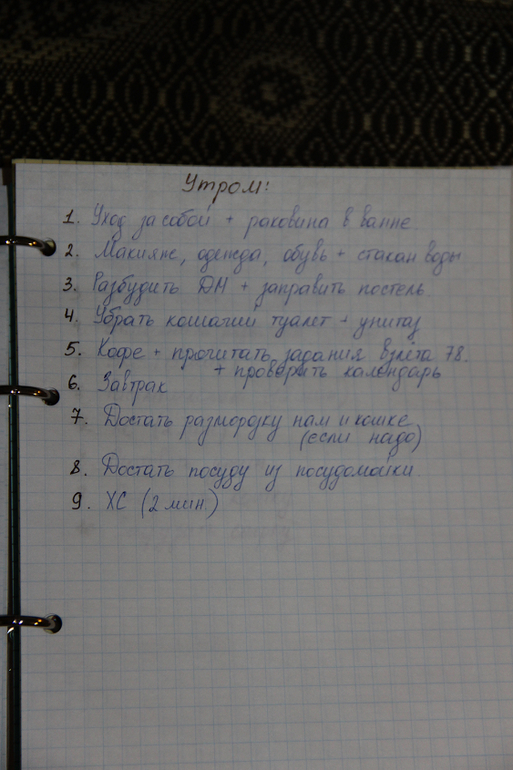 Утром:
1. Уход за собой + раковина в ванне.
2. Макияж, одежда, обувь + стакан воды
3. Разбудить ДН + заправить постель
4. Убрать кошачий туалет + унитаз
5. Кофе + прочитать задания взлёта 78.
+ проверить календарь
6. Завтрак
7. Достать разморозку нам и кошке
(если надо)
8. Достать посуду из посудомойки.
9. ХС (2 мин.)